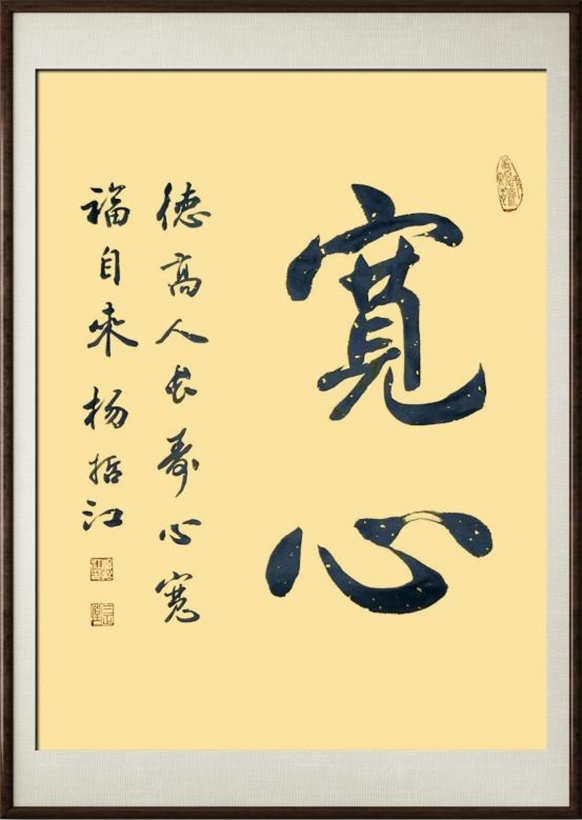 寬心
德高人长寿心宽
福自来杨哲江